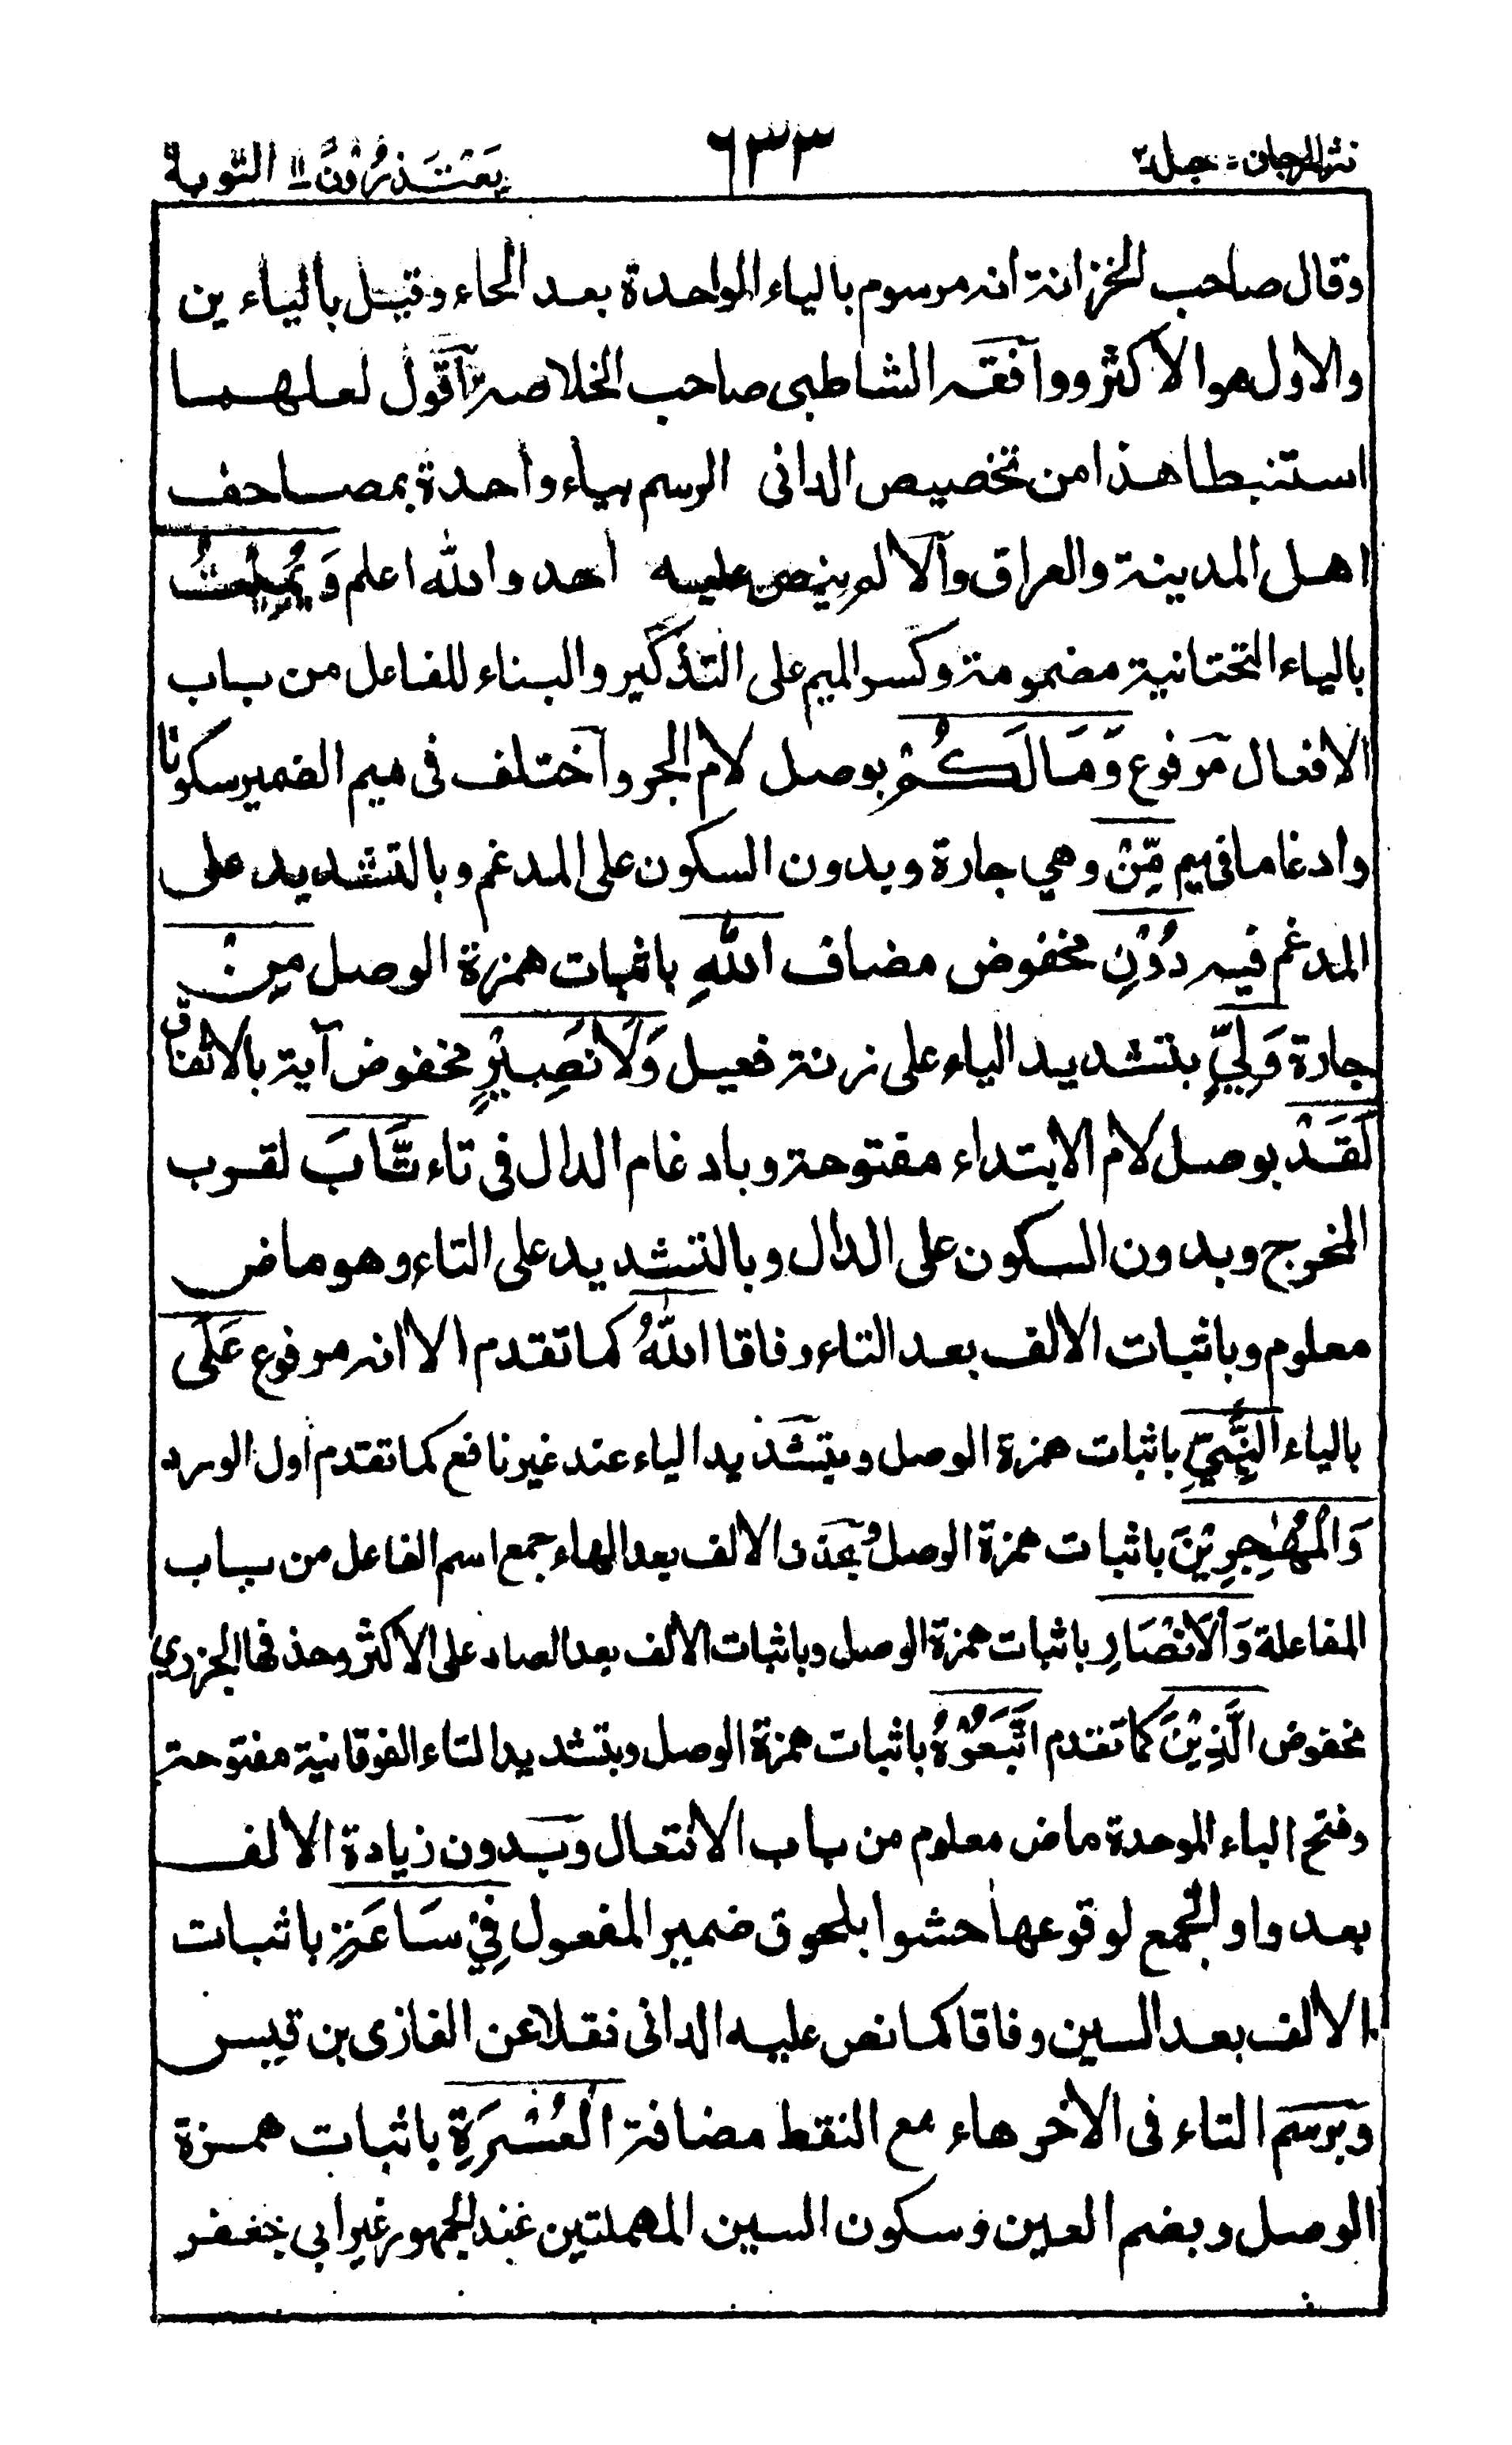 نثر المرجان - جلد ٢ ٦٣٣ يَعْتَذِرُوْنَ ١١ التوبة
وقال صاحب الخزانة انه مرسوم بالياء الواحدة بعد الحاء وقيل بالياءين
والاول هو الأكثر ووافقه الشاطبى صاحب الخلاصة آقول لعلهما
استنبطا هذا من تخصيص الدانى الرسم بياء واحدة بمصاحف
اهل المدينة والعراق وآلا لم ينص عليه احد والله اعلم وَيُمِيْتُ
بالياء التحتانية مضمومة وكسر الميم على التذكير والبناء للفاعل من باب
الافعال مرفوع وَمَالَكُمْ بوصل لام الجر وآختلف فى ميم الضمير سكونا
وادغاما فى ميم مِّنْ وهي جارة وبدون السكون على المدغم وبالتشديد على
المدغم فيه دُوْنِ مخفوض مضاف اللهِ باثبات همزة الوصل مِنْ
جارة وَلِيٍّ بتشديد الياء على زنة فعيل وَلَا نَصِيْرٍ مخفوض آية بالاتفاق
لَقَدْ بوصل لام الابتداء مفتوحة وبادغام الدال فى تاء تَّابَ لقرب
المخرج وبدون السكون على الدال وبالتشديد على التاء وهو ماض
معلوم وباثبات الالف بعد التاء وفاقا اللهُ كما تقدم الا انه مرفوع عَلَى
بالياء النَّبِيِّ باثبات همزة الوصل وبتشديد الياء عند غير نافع كما تقدم اول الورد
وَالْمُهٰجِرِيْنَ باثبات همزة الوصل وبحذف الالف بعد الهاء جمع اسم الفاعل من باب
المفاعلة وَالْاَنْصَارِ باثبات همزة الوصل وباثبات الالف بعد الصاد على الاكثر وحذفها الجزري
مخفوض الَّذِيْنَ كما تقدم اتَّبَعُوْهُ باثبات همزة الوصل وبتشديد التاء الفوقانية مفتوحة
وفتح الباء الموحدة ماض معلوم من باب الافتعال وبدون زيادة الالف
بعد واو الجمع لوقوعها حشوا بلحوق ضمير المفعول فِيْ سَاعَةِ باثبات
الالف بعد السين وفاقا كما نص عليه الدانى نقلا عن الغازى بن قيس
وبرسم التاء فى الآخر هاء مع النقط مضافة الْعُسْرَةِ باثبات همزة
الوصل وبضم العين وسكون السين المهملتين عند الجمهور غير ابي جعفر